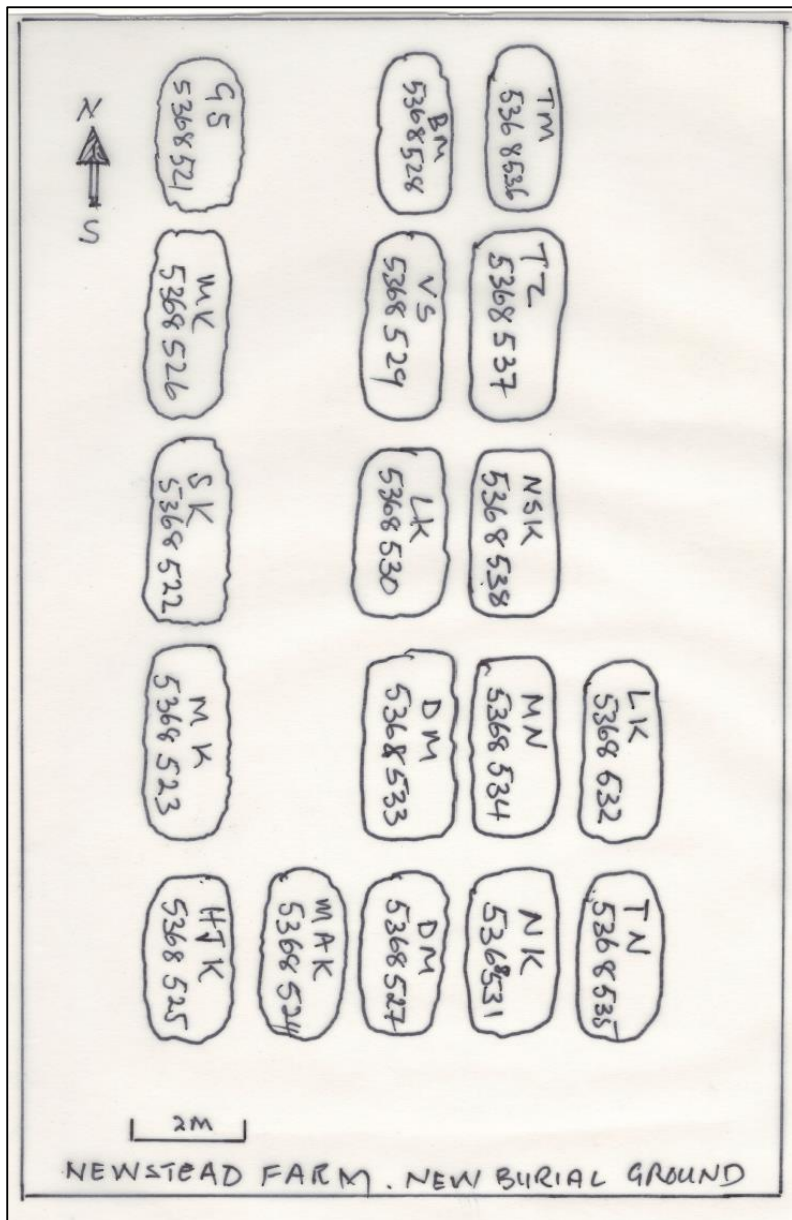 N
S
GS
5368521
BM
5368528
TM
5368536
MK
5368526
VS
5368529
TZ
5368537
SK
5368522
LK
5368530
NSK
5368538
MK
5368523
DM
5368533
MN
5368534
LK
5368532
HJK
5368525
MAK
5368524
DM
5368527
NK
5368531
TN
5368535
2M
NEWSTEAD FARM. NEW BURIAL GROUND